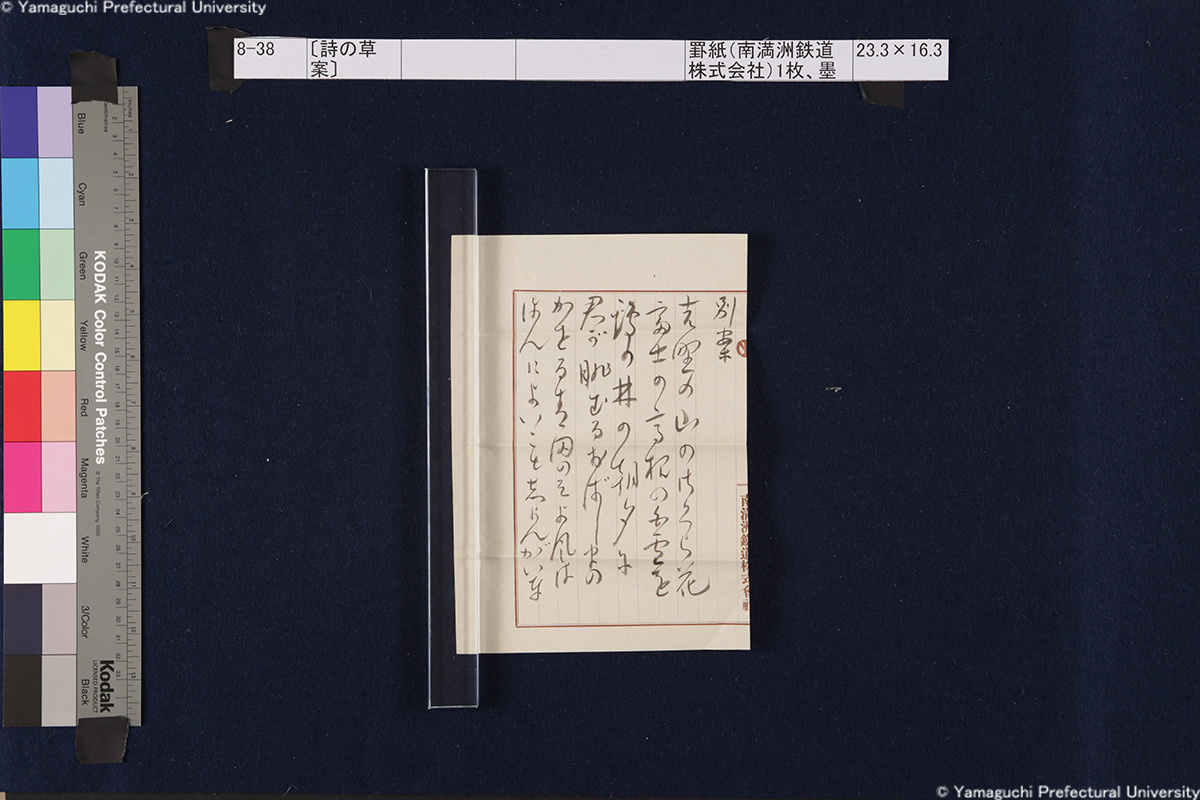 © Yamaguchi Prefectural University
8-38
〔詩の草
案〕
罫紙(南満洲鉄道
株式会社)1枚、墨
23.3×16.3
Blue
Cyan
Green
Yellow
Red
Magenta
White
3/Color
Black
KODAK Color Control Patches
Kodak
LICENSED PRODUCT
別案
吉野の山のさくら花
富士の高根の白雪を
鶴の林の朝夕に
君が眺むるおばしまの
かをる青田のそよ風は
ほんによいこと志よんがいな
南満洲鐵道株式會社
© Yamaguchi Prefectural University